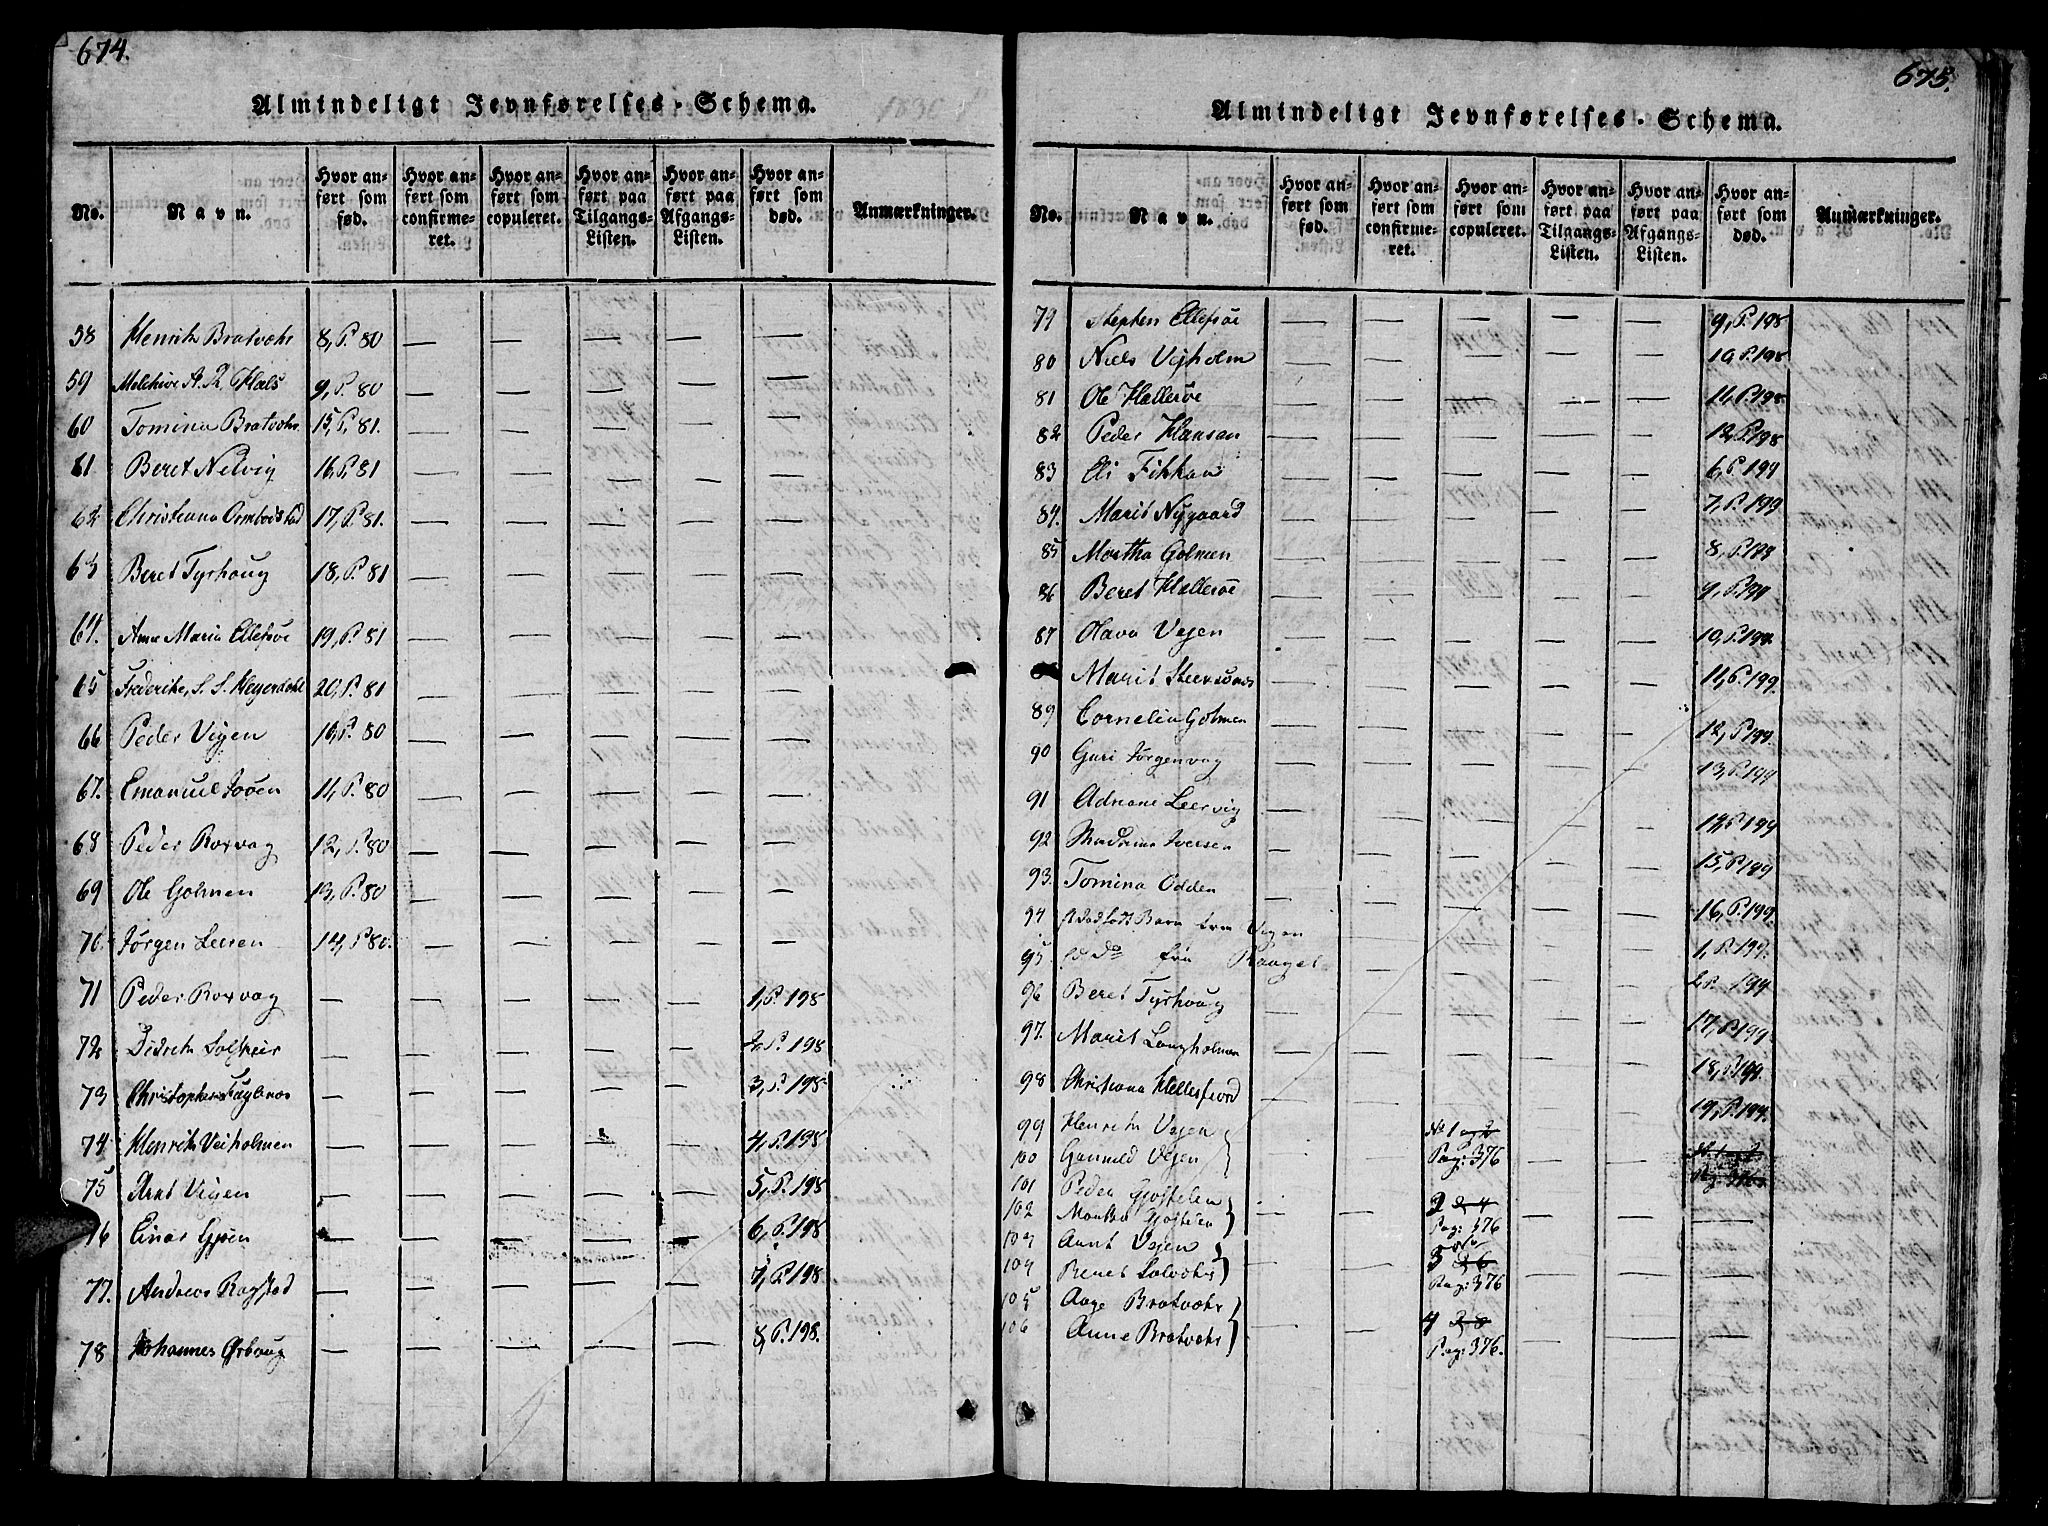 674.
Almindeligt Jevnførelses-Schema.
No. Navn. Hvor anført som fød. Hvor anført som confirmeret. Hvor anført som copuleret. Hvor anført paa Tilgangs-Listen. Hvor anført paa Afgangs-Listen. Hvor anført som død. Anmærkninger.
58 Henrik Bratvæhr 8, P. 80 — — — — —
59 Melchior A. R. Hals 9, P. 80 — — — — —
60 Tomina Bratvæhr 15, P. 81. — — — — —
61 Beret Nelvig 16, P. 81 — — — — —
62 Christiana Ormbostad 17, P. 81. — — — — —
63 Beret Tyrhoug 18, P. 81 — — — — —
64. Ane Maria Ellefsøe 19, P. 81 — — — — —
65 Frederike, S. S. Heyerdahl 20, P. 81 — — — — —
66 Peder Vigen 10, P. 80 — — — — —
67. Emanuel 11, P. 80 — — — — —
68 Peder Roxvag 12, P. 80 — — — — —
69 Ole Golmen 13, P. 80 — — — — —
70. Jørgen Leeren 14, P. 80. — — — — —
71 Peder Roxvag — — — — — 1, P. 198
72 Didrich Solskeir — — — — — 2, P. 198
73 Christopher Fuglenæs — — — — — 3, P. 198
74 Henrik Veiholmen — — — — — 4, P. 198
75 Arnt Vigen — — — — — 5, P. 198
76 Einar — — — — — 6, P. 198
77. Andreas Rogstad — — — — — 7, P. 198
78 Johannes Ørboug — — — — — 8, P. 198.
675.
Almindeligt Jevnførelses-Schema.
No. Navn. Hvor anført som fød. Hvor anført som confirmeret. Hvor anført som copuleret. Hvor anført paa Tilgangs-Listen. Hvor anført paa Afgangs-Listen. Hvor anført som død. Anmærkninger.
79 Stephen Ellefsøe — — — — — 9, P. 198
80 Niels Vejholm — — — — — 10, P. 198
81 Ole Hallerøe — — — — — 11, P. 198.
82 Peder Hansen — — — — — 12, P. 198
83 Eli — — — — — 6, P. 199
84. Marit Nygaard — — — — — 7, P. 199
85 Martha Golmen — — — — — 8, P. 199
86 Beret Hallerøe — — — — — 9, P. 199
87 Olava Vejen — — — — — 10, P. 199.
Marit — — — — — 11, P. 199.
89 Cornelia Golmen — — — — — 12, P. 199.
90 Guri Jørgenvag — — — — — 13, P. 199
91 Adriane Leervig — — — — —
92 Iversen — — — — — P. 199
93. Tomina Odden — — — — — 15, P. 199
94 Dødfødt Barn fra Vigen — — — — — 16, P. 199.
95 Do fra — — — — — 1, P. 199.
96 Beret Tyrhoug — — — — — 2, P. 199
97. Marit Langholmen — — — — — 17, P. 199
98 Christiana Hellesfiord — — — — — 18, P. 199.
19, P. 199.
99 Henrik Vejen } — — No 1 og 2 — —
100 Gunnild Vejen } Pag: 376
101 Peder Gjøstelen }
102 Gjøstelen } — — 2 3, 4 — — —
Pag: 376
103 Arnt Vejen }
104 Beret Solvæhr } — — 3 5, 6 — — —
Pag: 376
105 Aage Bratvæhr }
106 Anne Bratvæhr } — — 4 7, 8 — — —
Pag: 376.